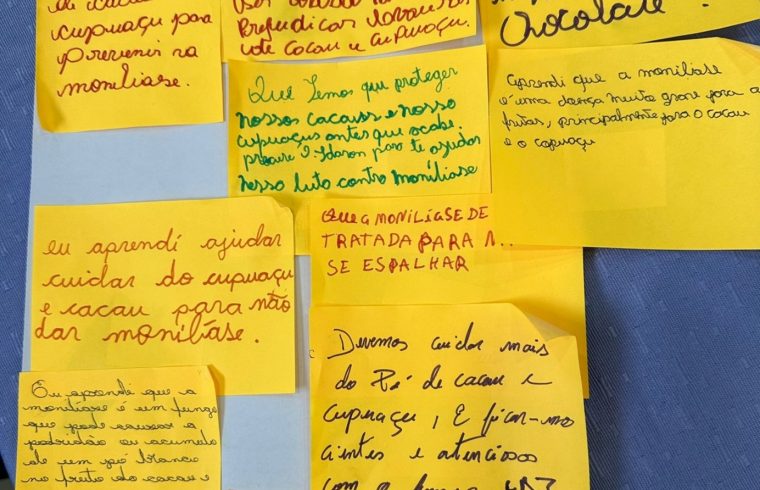 de cacau
cupuaçu para
prevenir na
moniliase.
Prejudicar
cacau e cupuaçu.
Chocolate!
Que Temos que proteger
nossos cacaus e nosso
cupuaçus antes que acabe.
procure o Idaron para te ajudar
nesso luto contra monilíase
aprendi que a moniliase
é uma doença muito grave para a
frutas, principalmente para o cacau
e o cupuaçu
QUE A MONILÍASE DE
TRATADA PARA N
SE ESPALHAR
eu aprendí ajudar
cuidar do cupuaçu
e cacau para não
dar monilíase.
Devemos cuidar mais
do Pé de cacau e
cupuaçu, E ficar-mo
cientes e atenciosos
com a
Eu aprendi que a
monilíase é um fungo
que pode causar a
podridão ou acumulo
de um pó branco
no fruto do cacau e